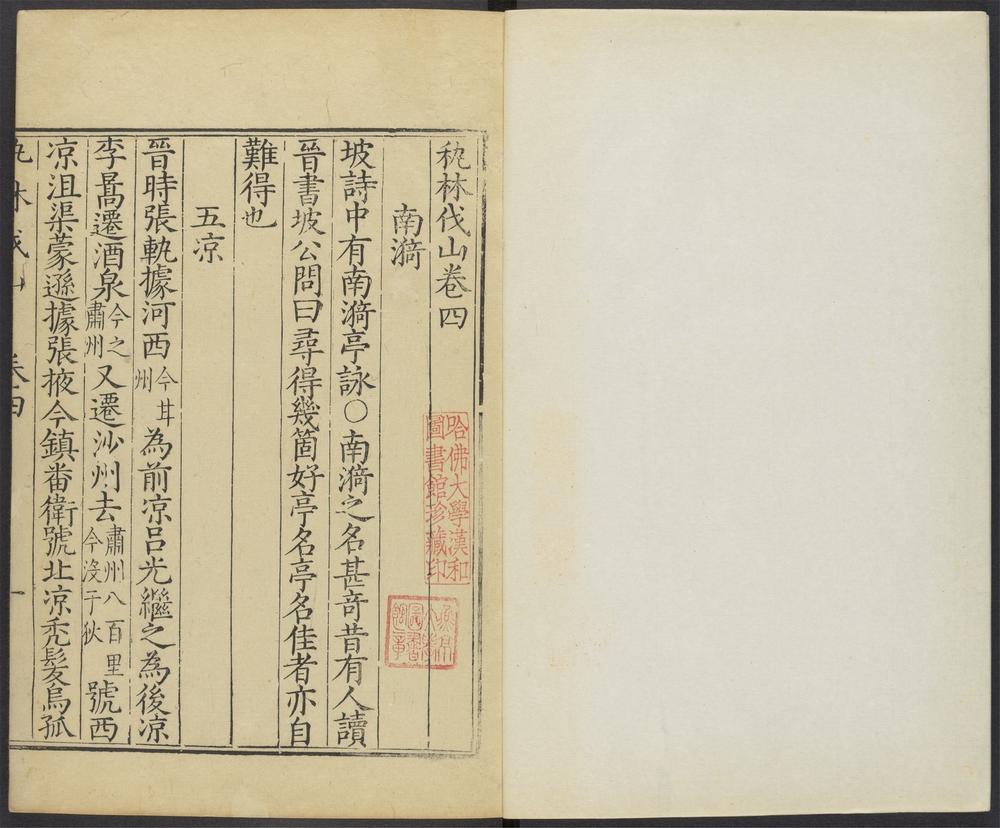 秇林伐山卷四
南漪
坡詩中有南漪亭詠○南漪之名甚奇昔有人讀
晉書坡公問曰尋得幾箇好亭名亭名佳者亦自
難得也
五凉
晉時張軌據河西今甘州為前凉吕光繼之為後凉
李暠遷酒泉今之肅州又遷沙州去肅州八百里今沒于狄號西
凉沮渠蒙遜據張掖今鎮番衛號北凉禿髮烏孤
林伐山 卷四 一
哈佛大學漢和
圖書館珍藏印